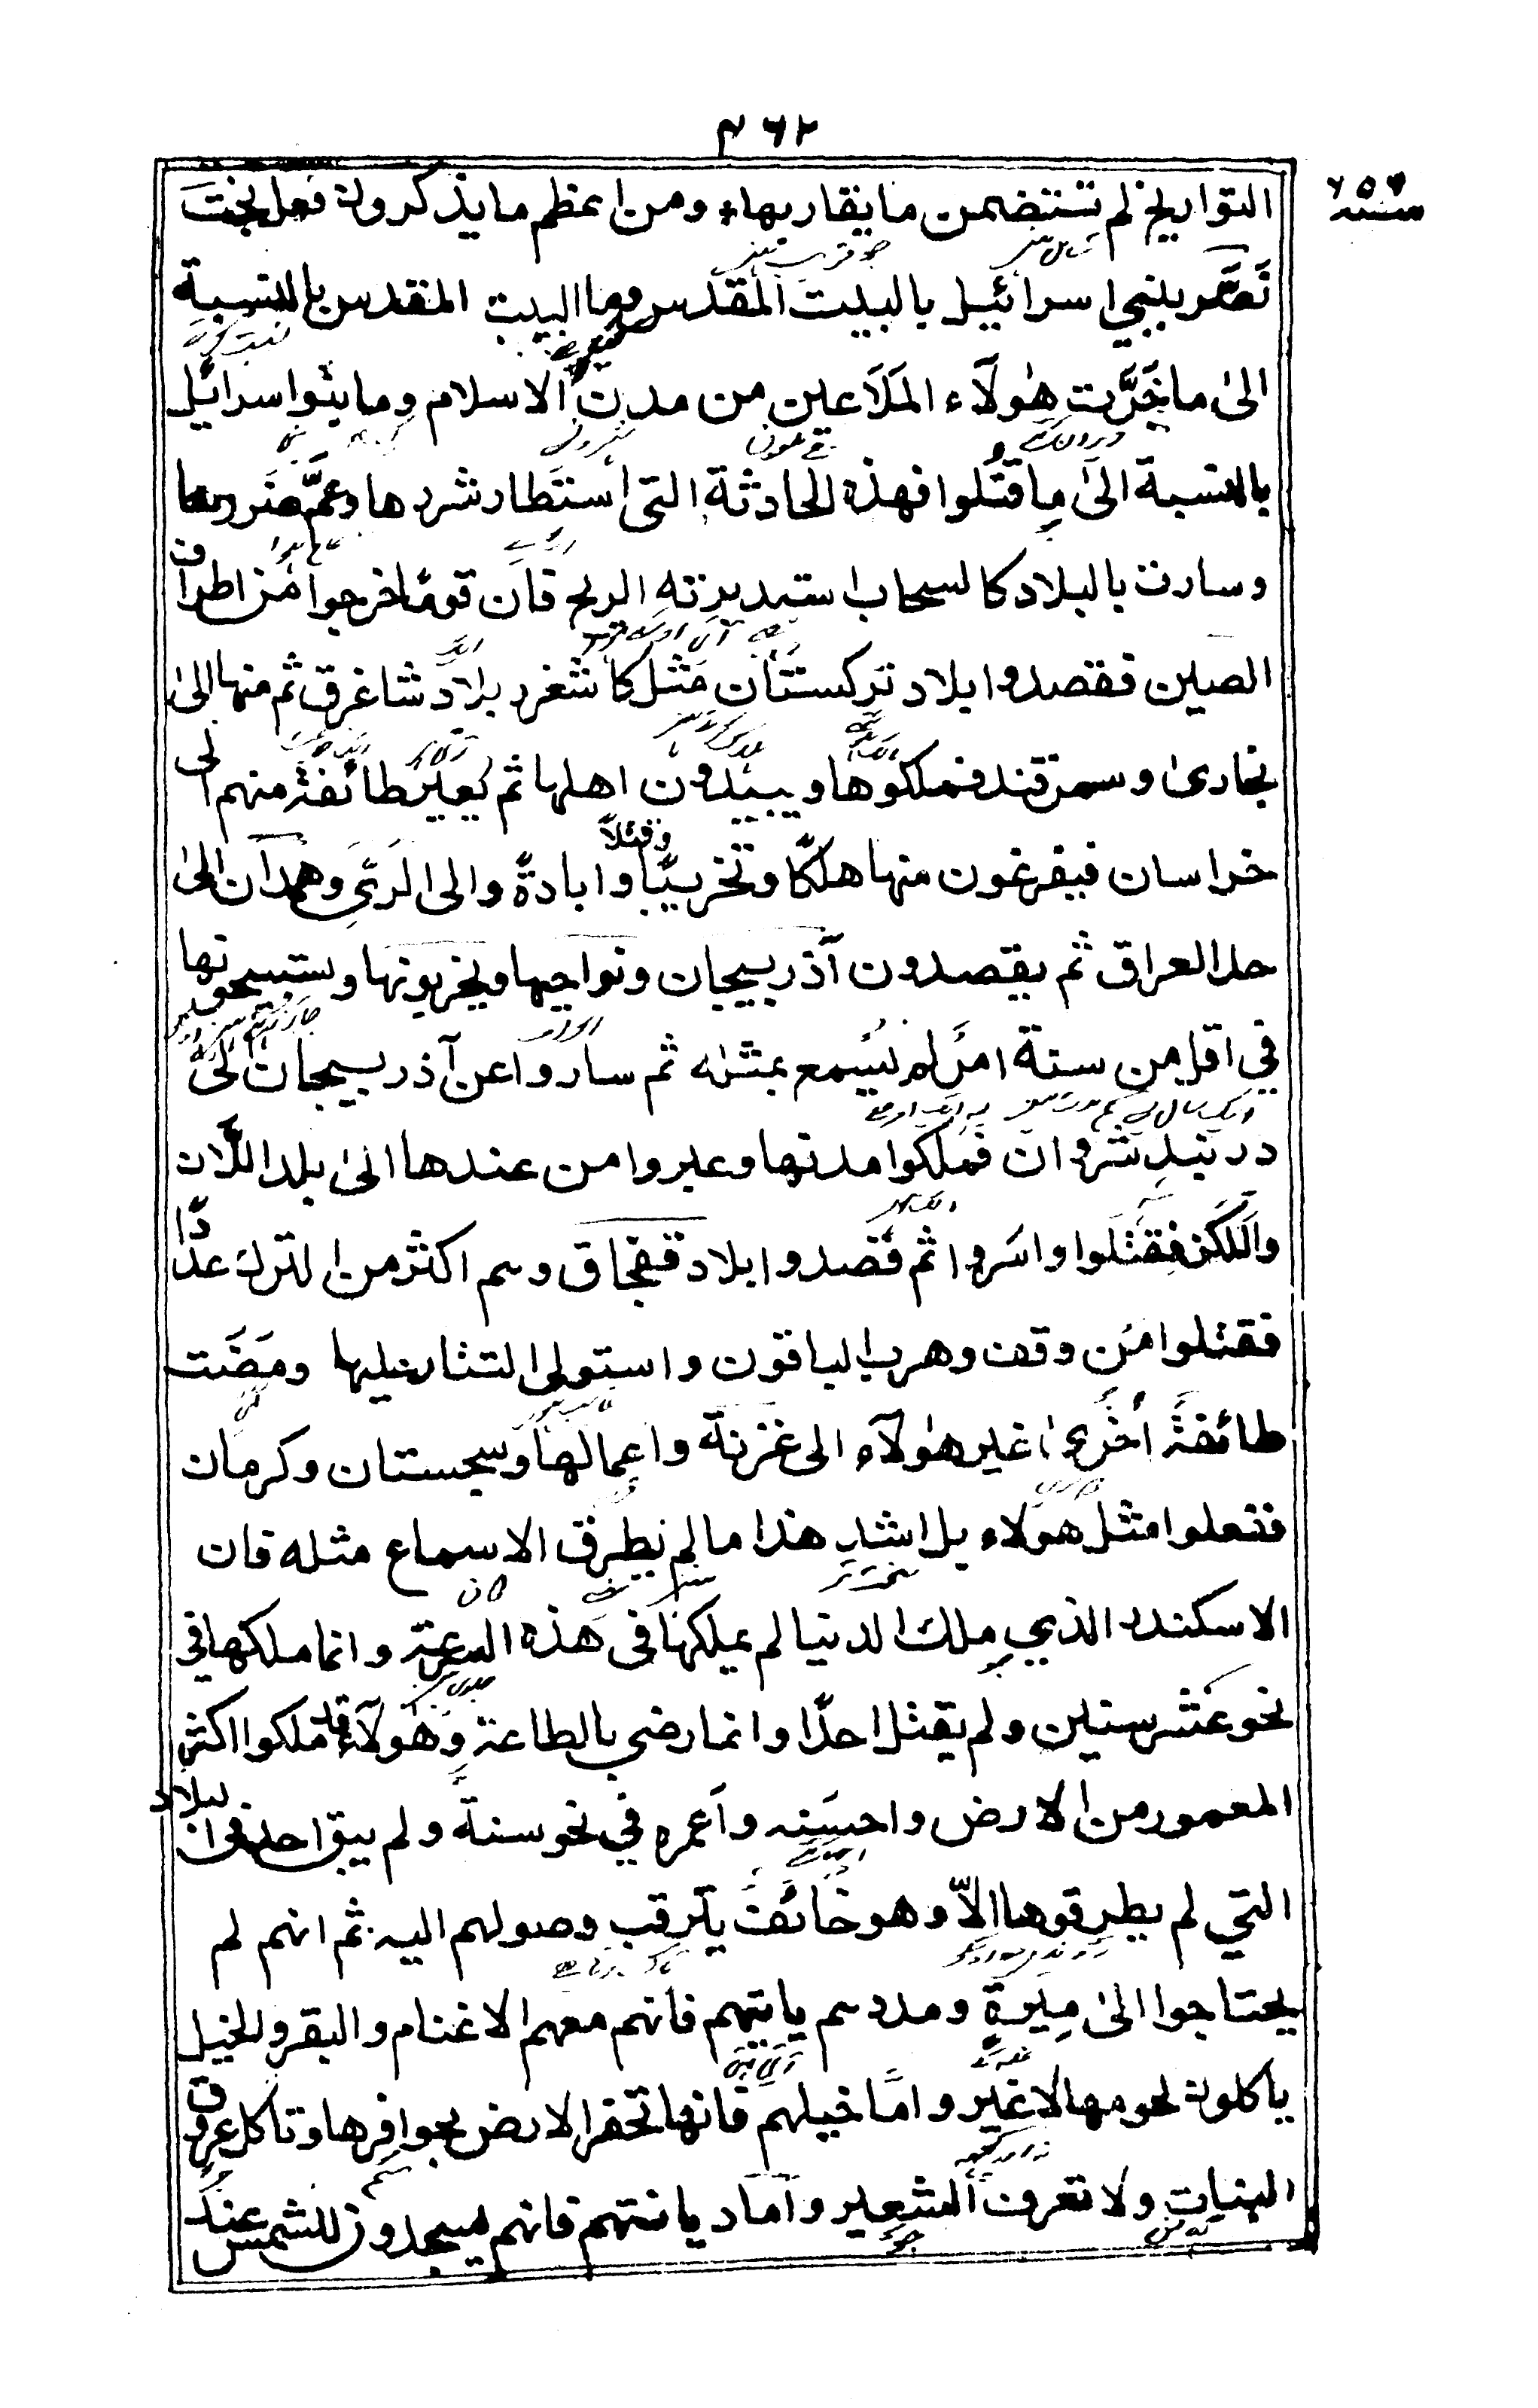 ٤٦٢
سنة ٦٥٦
التواريخ لم تتضمن ما يقاربها ومن اعظم ما يذكرون فعل بخت
نَصَّر ببني اسرائيل بالبيت المقدس وما البيت المقدس بالنسبة
الىٰ ما خَرَّبت هٰولآء المَلَاعين من مدن الاسلام وما بنوا سرائيل
بالنسبة الىٰ ما قتلوا فهذه الحادثة التى استطار شررها وعَمَّ ضررها
وسارت بالبلاد كالسحاب استدبرته الريح فان قومًا خرجوا من اطراف
الصين فقصدوا بلاد تركستان مثل كاشغر وبلاد شاغرق ثم منها الىٰ
بخارىٰ وسمرقند فملكوها ويبيدون اهلها ثم يعبر طائفة منهم الى
خراسان فيفرغون منها هلكًا وتخريبًا وقتلاً وابادةً والى الرَّيِّ وهمدان الىٰ
حد العراق ثم يقصدون آذربيجان ونواحيها ويخربونها ويستبيحونها
في اقل من سنة امرٌ لم يُسمع بمثله ثم ساروا عن آذربيجان الىٰ
دربند شروان فملكوا مدنها وعبروا من عندها الىٰ بلد اللَّان
واللكز فقتلوا واسروا ثم قصدوا بلاد قفجاق وهم اكثر من الترك عددًا
فقتلوا من وقف وهرب الباقون واستولى التتار عليها ومَضَت
طائفةٌ اُخرىٰ غير هٰولآء الى غزنة واعمالها وسجستان وكرمان
ففعلوا مثل هولاء بل اشد هذا ما لم يطرق الاسماع مثله فان
الاسكندر الذي ملك الدنيا لم يملكها فى هذه السرعة وانما ملكها في
نحو عشر سنين ولم يقتل احدًا وانما رضي بالطاعة وهولآء قد ملكوا اكثر
المعمور من الارض واحسنه واَعمره في نحو سنة ولم يبق احد فى البلاد
التي لم يطرقوها الاّ وهو خائفٌ يترقب وصولهم اليه ثم انهم لم
يحتاجوا الىٰ مِيرةٍ ومددهم ياتيهم فانهم معهم الاغنام والبقر والخيل
ياكلون لحومها لا غير واما خيلهم فانها تحفر الارض بحوافرها وتاكل عروق
النبات ولا تعرف الشعير واما ديانتهم فانهم يسجدون للشمس عند